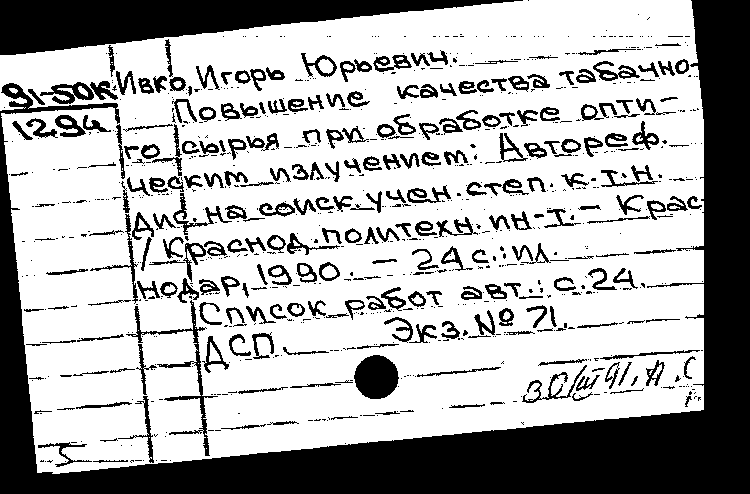 91-50к Ивко, Игорь Юрьевич.
1294 Повышение качества табачно-
го сырья при обработке опти-
ческим излучением: Автореф.
дис. на соиск. учен. степ. к.т.н.
/ Краснод. политехн. ин-т. – Крас-
нодар, 1990. – 24 с.: ил.
Список работ авт.: с. 24.
ДСП. Экз. № 71.
30/III 91. А.С
5